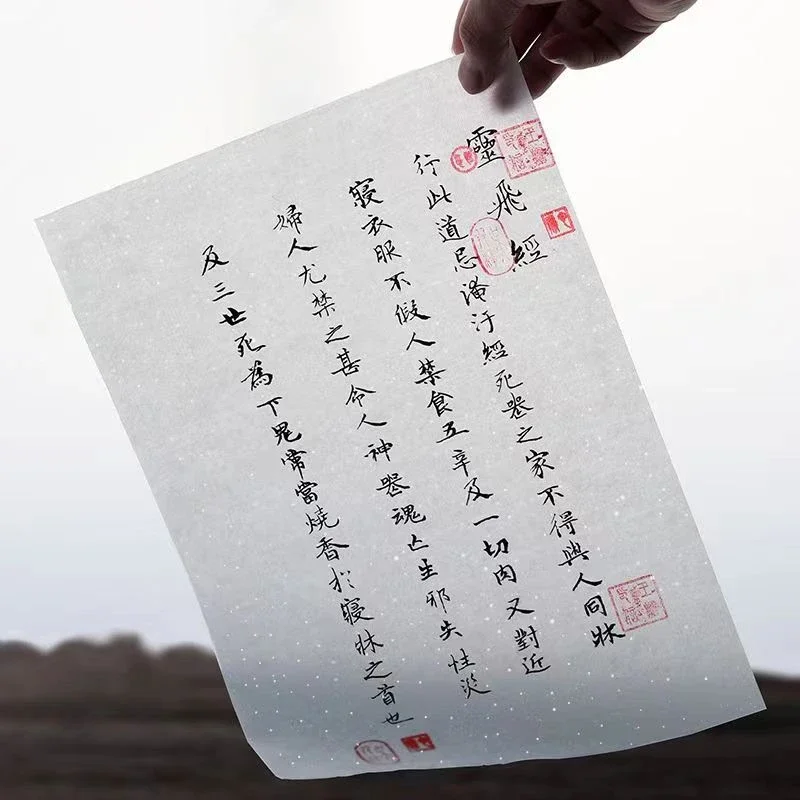 靈飛經
行此道忌淹汙經死喪之家不得與人同牀
寢衣服不假人禁食五辛及一切肉又對近
婦人尤禁之甚令人神喪魂亡生邪失性災
及三世死為下鬼常當燒香於寢牀之首也